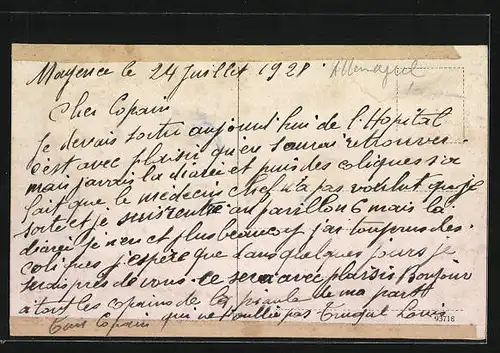 Mayence le 24 Juillet 1928.
Allemagne
Cher Copain
Je devais sortir aujourd'hui de l'Hopital
c'est avec plaisir qu'on saurai retrouver
mais j'avais la diaree et puis des coliques sa
fait que le médecin chef n'a pas voulut que je
sorte et je suis rentré au pavillon 6 mais la
diaree je n'en et plus beaucoup j'ai toujours des
coliques j'espere que dans quelques jours je
serais pres de vous. ce sera avec plaisir bonjour
a tout les copains de la piaule de ma part
ton Copain qui ne t'oublie pas Louis
93716